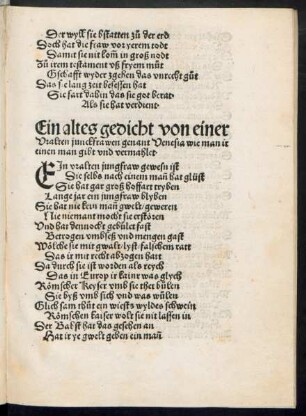 Der wyll sie bstatten zů der erd
Doch hat die fraw vor yerem todt
Damit sie nit kom̄ in groß nodt
Zů irem testament vß fryem můt
Gschafft wyder zgeben das vnrecht gůt
Das sie lang zeit besessen hat
Sie fart dahin das sie got berat
Als sie hat verdient·
Ein altes gedicht von einer
Vralten junckfrawen genant Venesia wie man it
einen man gibt vnd vermahlet
EIn vralten jungfraw gewesn ist
Die selbs nach einem man̄ hat glüst
Sie hat gar groß hoffart tryben
Lange jar ein jungfraw blyben
Sie hat nie kein man̄ gwelt geweren
Nie niemant mocht sie erstören
Vnd hat dennocht gebület fast
Betrogen vmbseß vnd mengen gast
Wölche sie mit gwalt lyst falschem ratt
Das ir mit recht abzogen hatt
Da durch sie ist worden als reych
Das in Europ ir kaine was glych
Römscher Keyser vmb sie ther bůlen
Sie byß vmb sich vnd was wůlen
Glich sam thůt ein wiests wyldes schwein
Römschen kaiser wolt sie nit lassen in
Der Babst hat das gesehen an
Hat ir ye gwelt geben ein man̄